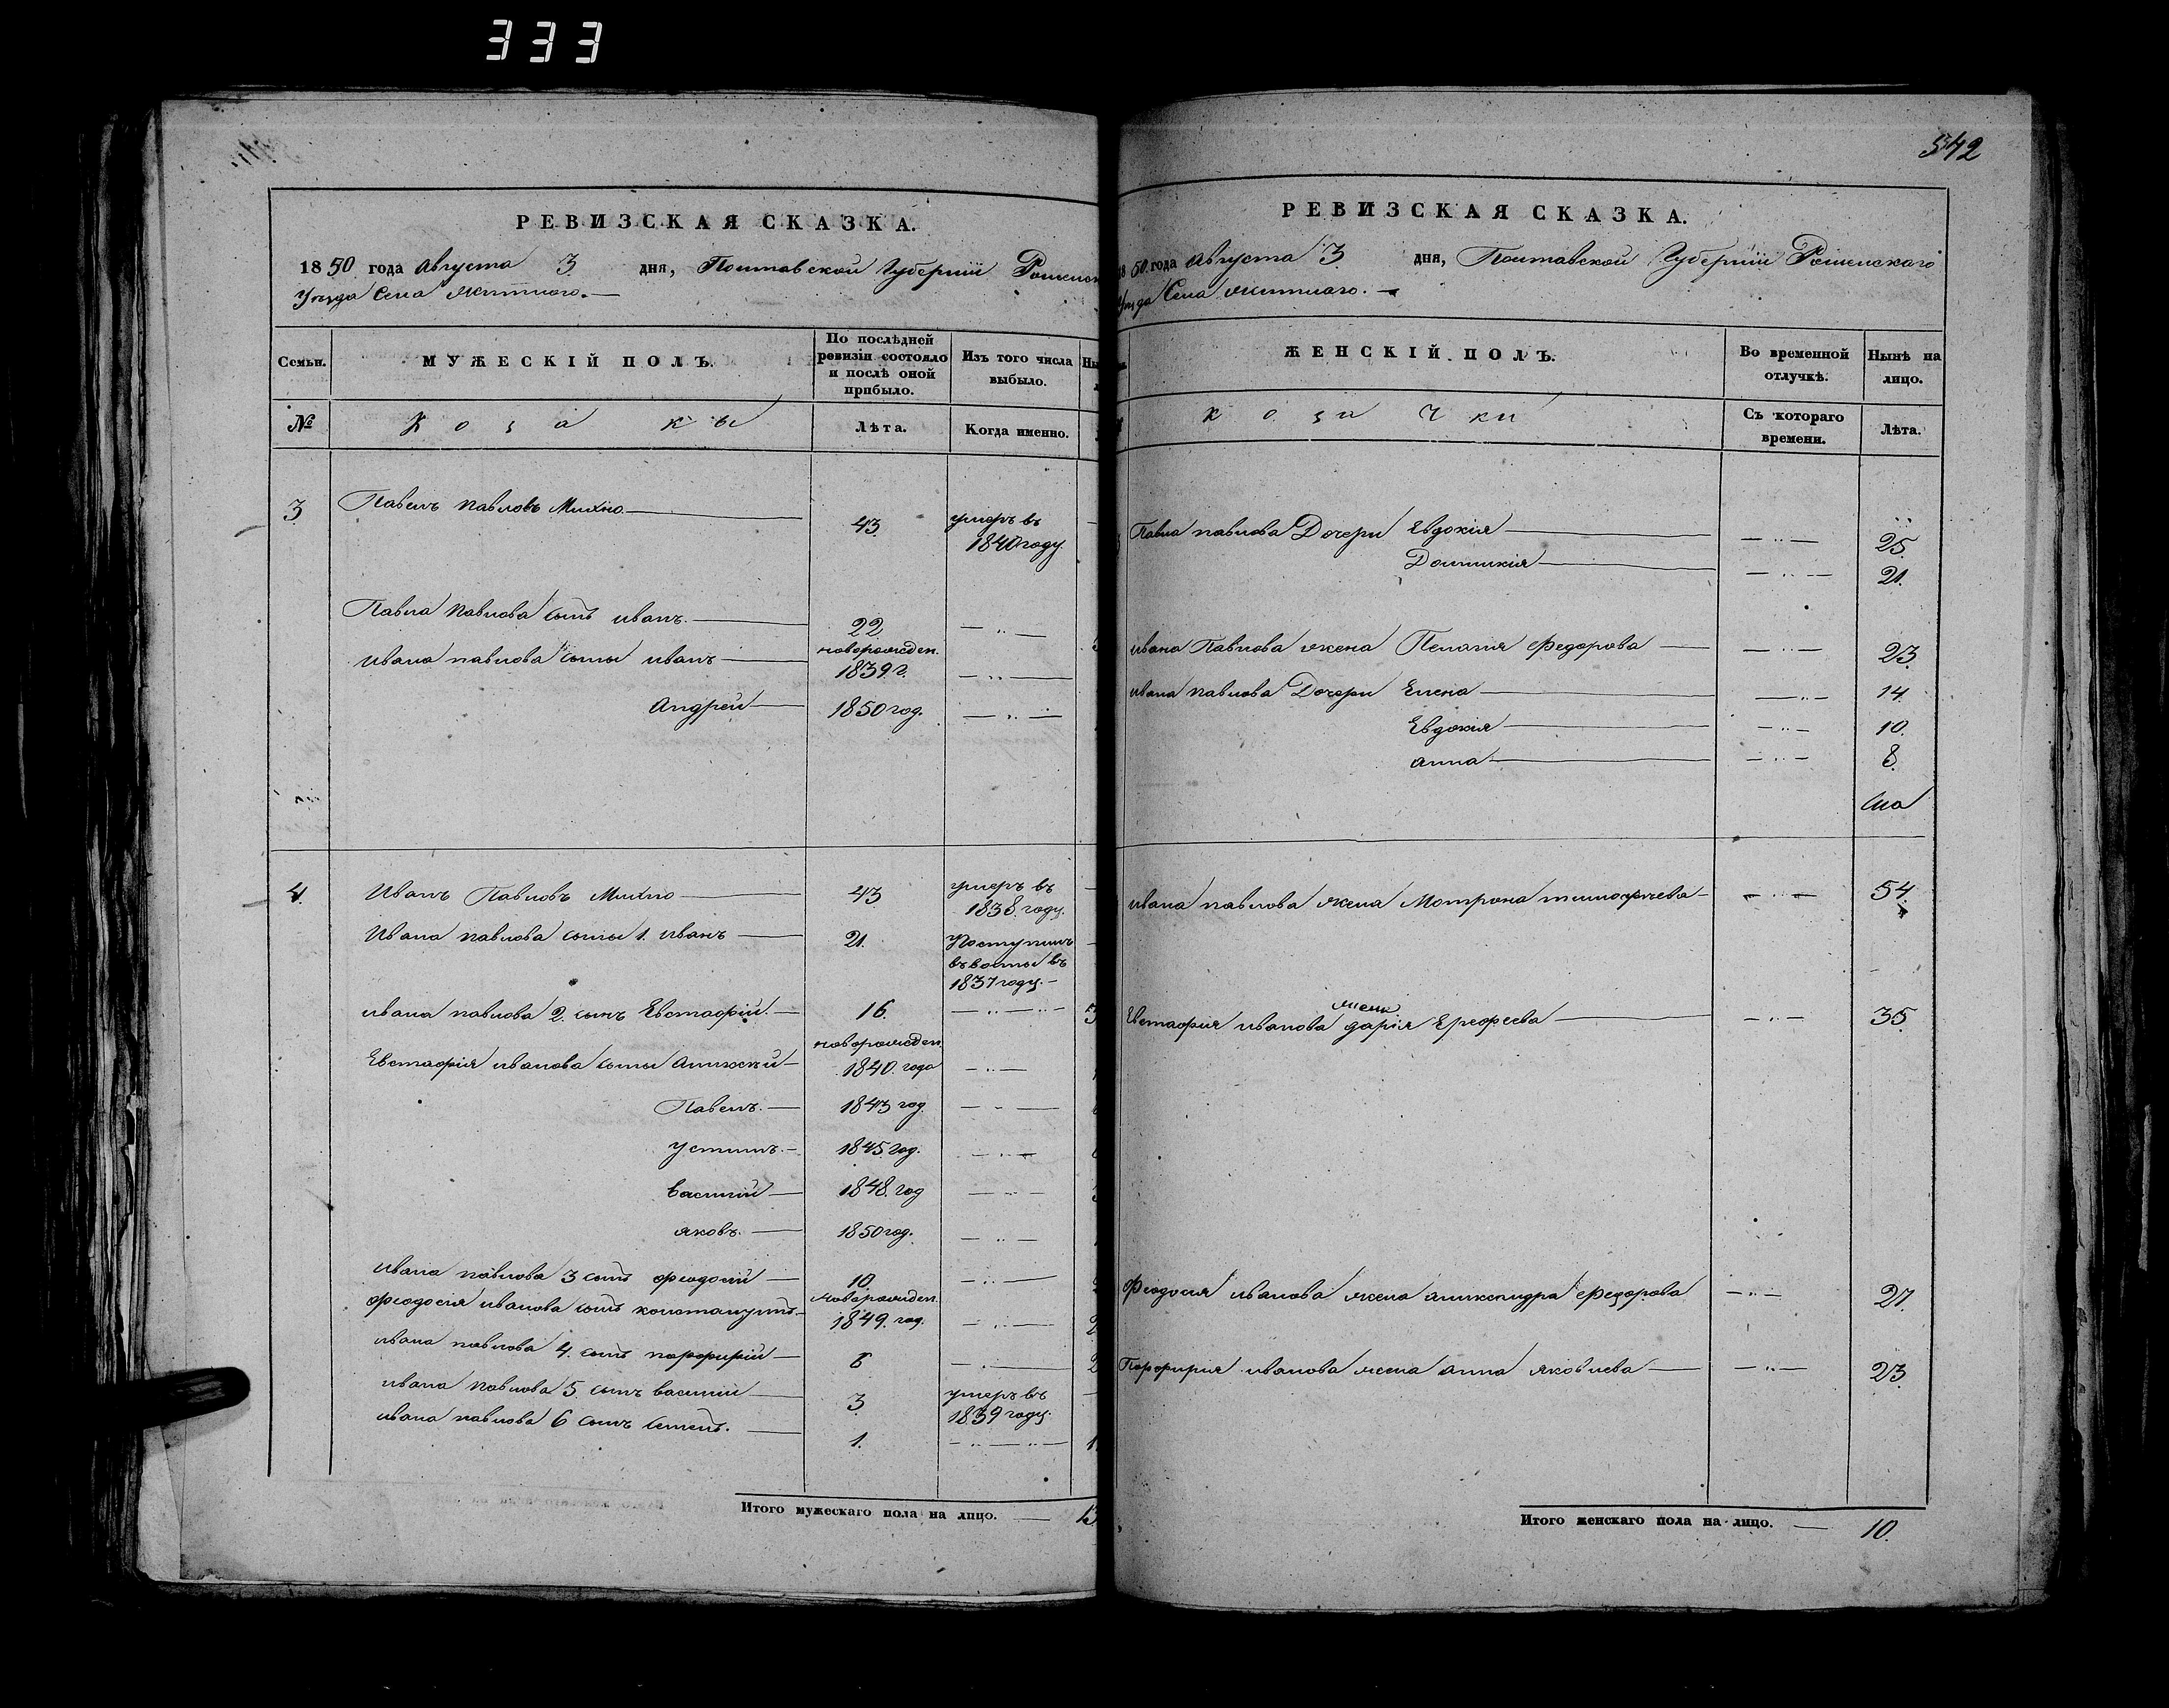 333
РЕВИЗСКАЯ СКАЗКА.
1850 года Августа 3 дня, Полтавской Губернiи
Уезда Села
Семьи.
МУЖЕСКIЙ ПОЛЪ.
По послѣдней
ревизiи состояло
и послѣ оной
прибыло.
Изъ того числа
выбыло.
№
Козаки
Лѣта.
Когда именно.
3
Павелъ Павловъ Михно
43
умеръ въ
1840 году.
Павла Павлова сынъ иванъ.
22
Ивана павлова сыны иванъ
новорожден.
1839 г.
Андрей
1850 год.
4.
Иванъ Павловъ Михно
43
умеръ въ
1838. году.
Ивана павлова сыны 1. Иванъ
21.
Поступилъ
1837 году.
ивана павлова 2. сынъ Евстафiй.
16.
Евстафiя иванова сыны Алексей
новорожден.
1840. года
Павелъ.
1843 год.
Устинъ.
1845 год.
Василiй
1848. год
яковъ.
1850 год.
Ивана павлова 3 сынъ феодосiй
10.
феодосiя иванова сынъ константинъ.
новорожден.
1849. год.
ивана павлова 4. сынъ порфирiй
6
ивана павлова 5. сынъ василiй
3.
умеръ въ
1839 году.
ивана павлова 6 сынъ семенъ.
1.
Итого мужескаго пола на лицо. 13
542
РЕВИЗСКАЯ СКАЗКА.
1850 года Августа 3 дня, Полтавской Губернiи Роменскаго
Уезда Села
ЖЕНСКIЙ ПОЛЪ.
Во временной
отлучкѣ.
Нынѣ на
лицо.
козачки
Съ котораго
времени.
Лѣта.
Павла павлова Дочери Евдокiя
25.
Домникiя
21.
ивана Павлова жена Пелагiя Федорова
23.
ивана павлова Дочери Елена
14.
Евдокiя
10.
анна
8.
ивана павлова жена Мотрона тимофеева
54.
Евстафiя иванова жена дарiя Ерофеева
35.
Феодосiя иванова жена александра федорова
27.
Порфирiя иванова жена анна яковлева
23.
Итого женскаго пола на лицо. 10.